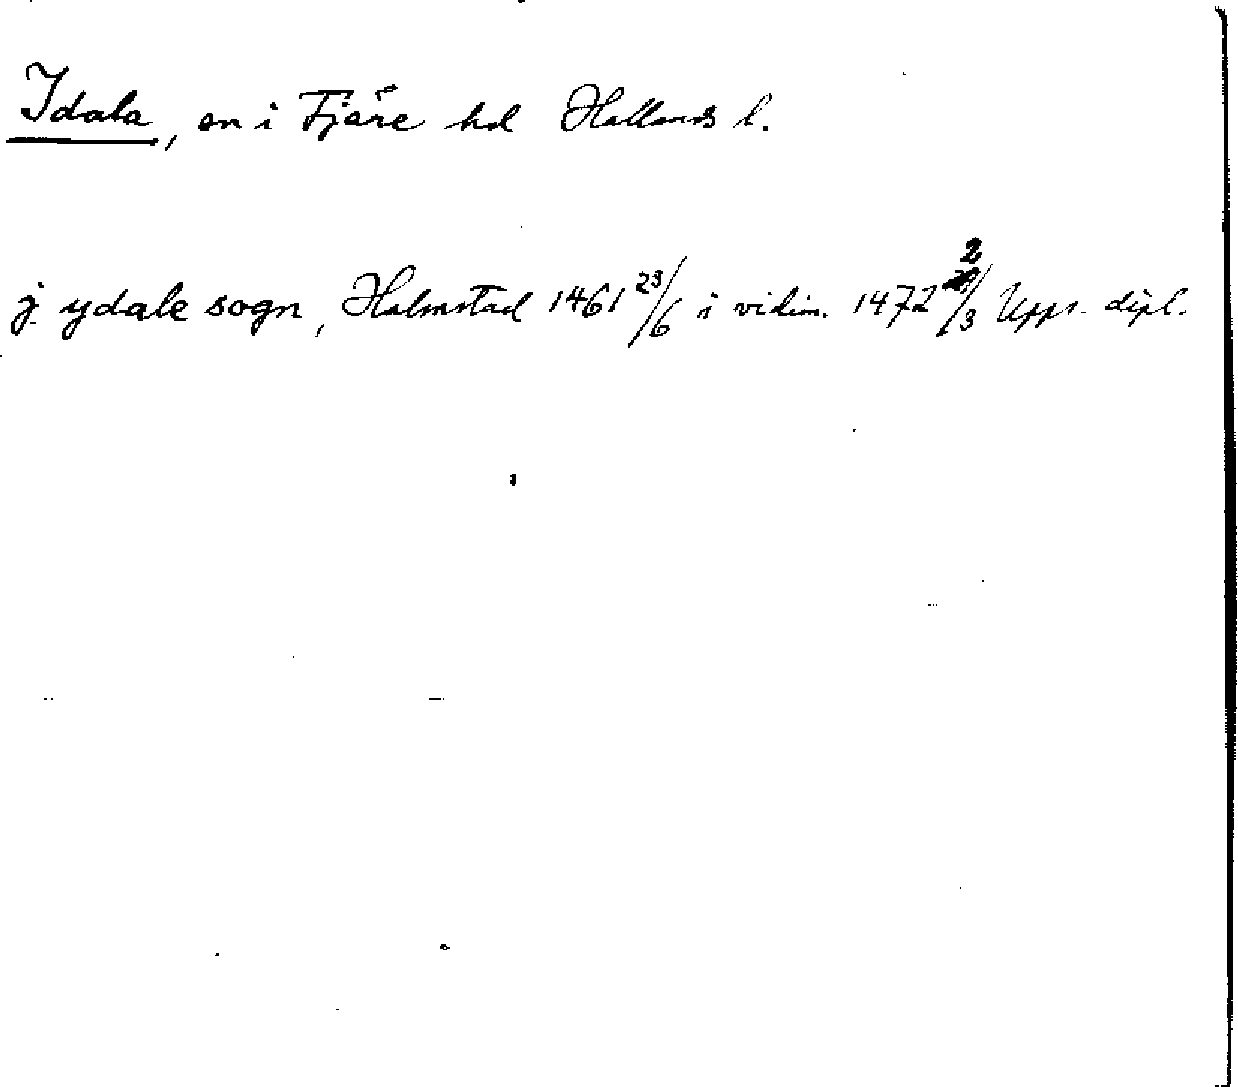 Idala, sn i Fjäre hd Hallands l.
j ydale sogn, Halmstad 1461 23/6 i vidim. 1472 2/3 Upps. dipl.